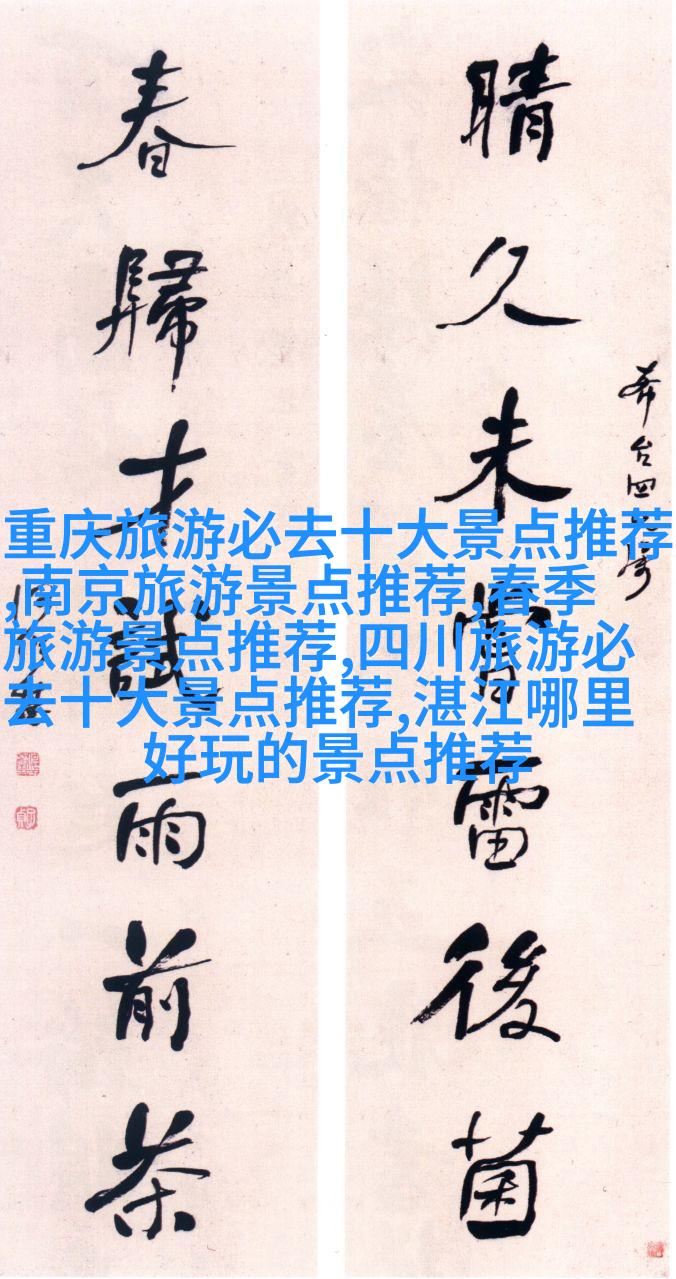 晴久未嘗雷後菌
春歸才試雨前茶
重庆旅游必去十大景点推荐
,南京旅游景点推荐,春季
旅游景点推荐,四川旅游必
去十大景点推荐,湛江哪里
好玩的景点推荐